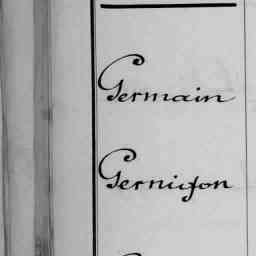 Germain
Gernigon